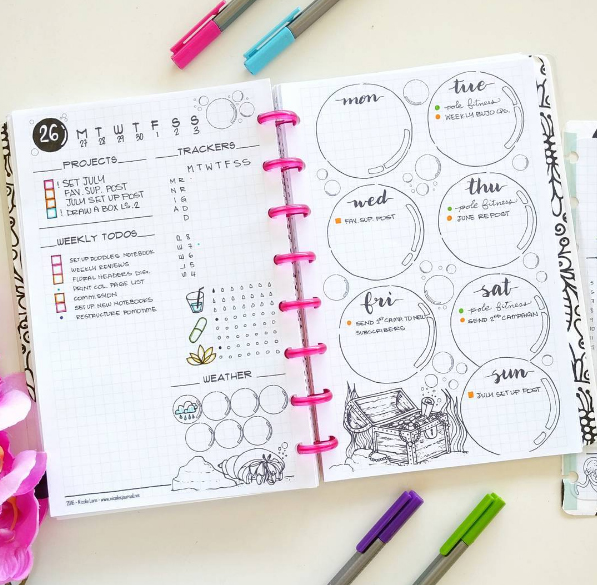 26
M T W T F S S
27 28 29 30 1 2 3
PROJECTS
! SET JULY
FAV. SUP. POST
JULY SET UP POST
! DRAW A BOX LS. 2
WEEKLY TODOS
SET UP DOODLES NOTEBOOK
WEEKLY REVIEWS
FLORAL HEADERS
PRINT COL. PAGE LIST
COMMISSION
SET UP NEW NOTEBOOKS
RESTRUCTURE
TRACKERS
M T W T F S S
M R
N R
I G
A D
D
Q 8
W 7
W 6
J 5
W 4
WEATHER
mon
tue
pole fitness
WEEKLY BUJO
wed
FAV. SUP. POST
thu
pole fitness
JUNE RE POST
fri
SEND 1ST CAMP TO NEW
SUBSCRIBERS
sat
pole fitness
SEND 2ND CAMPAIGN
sun
JULY SET UP POST